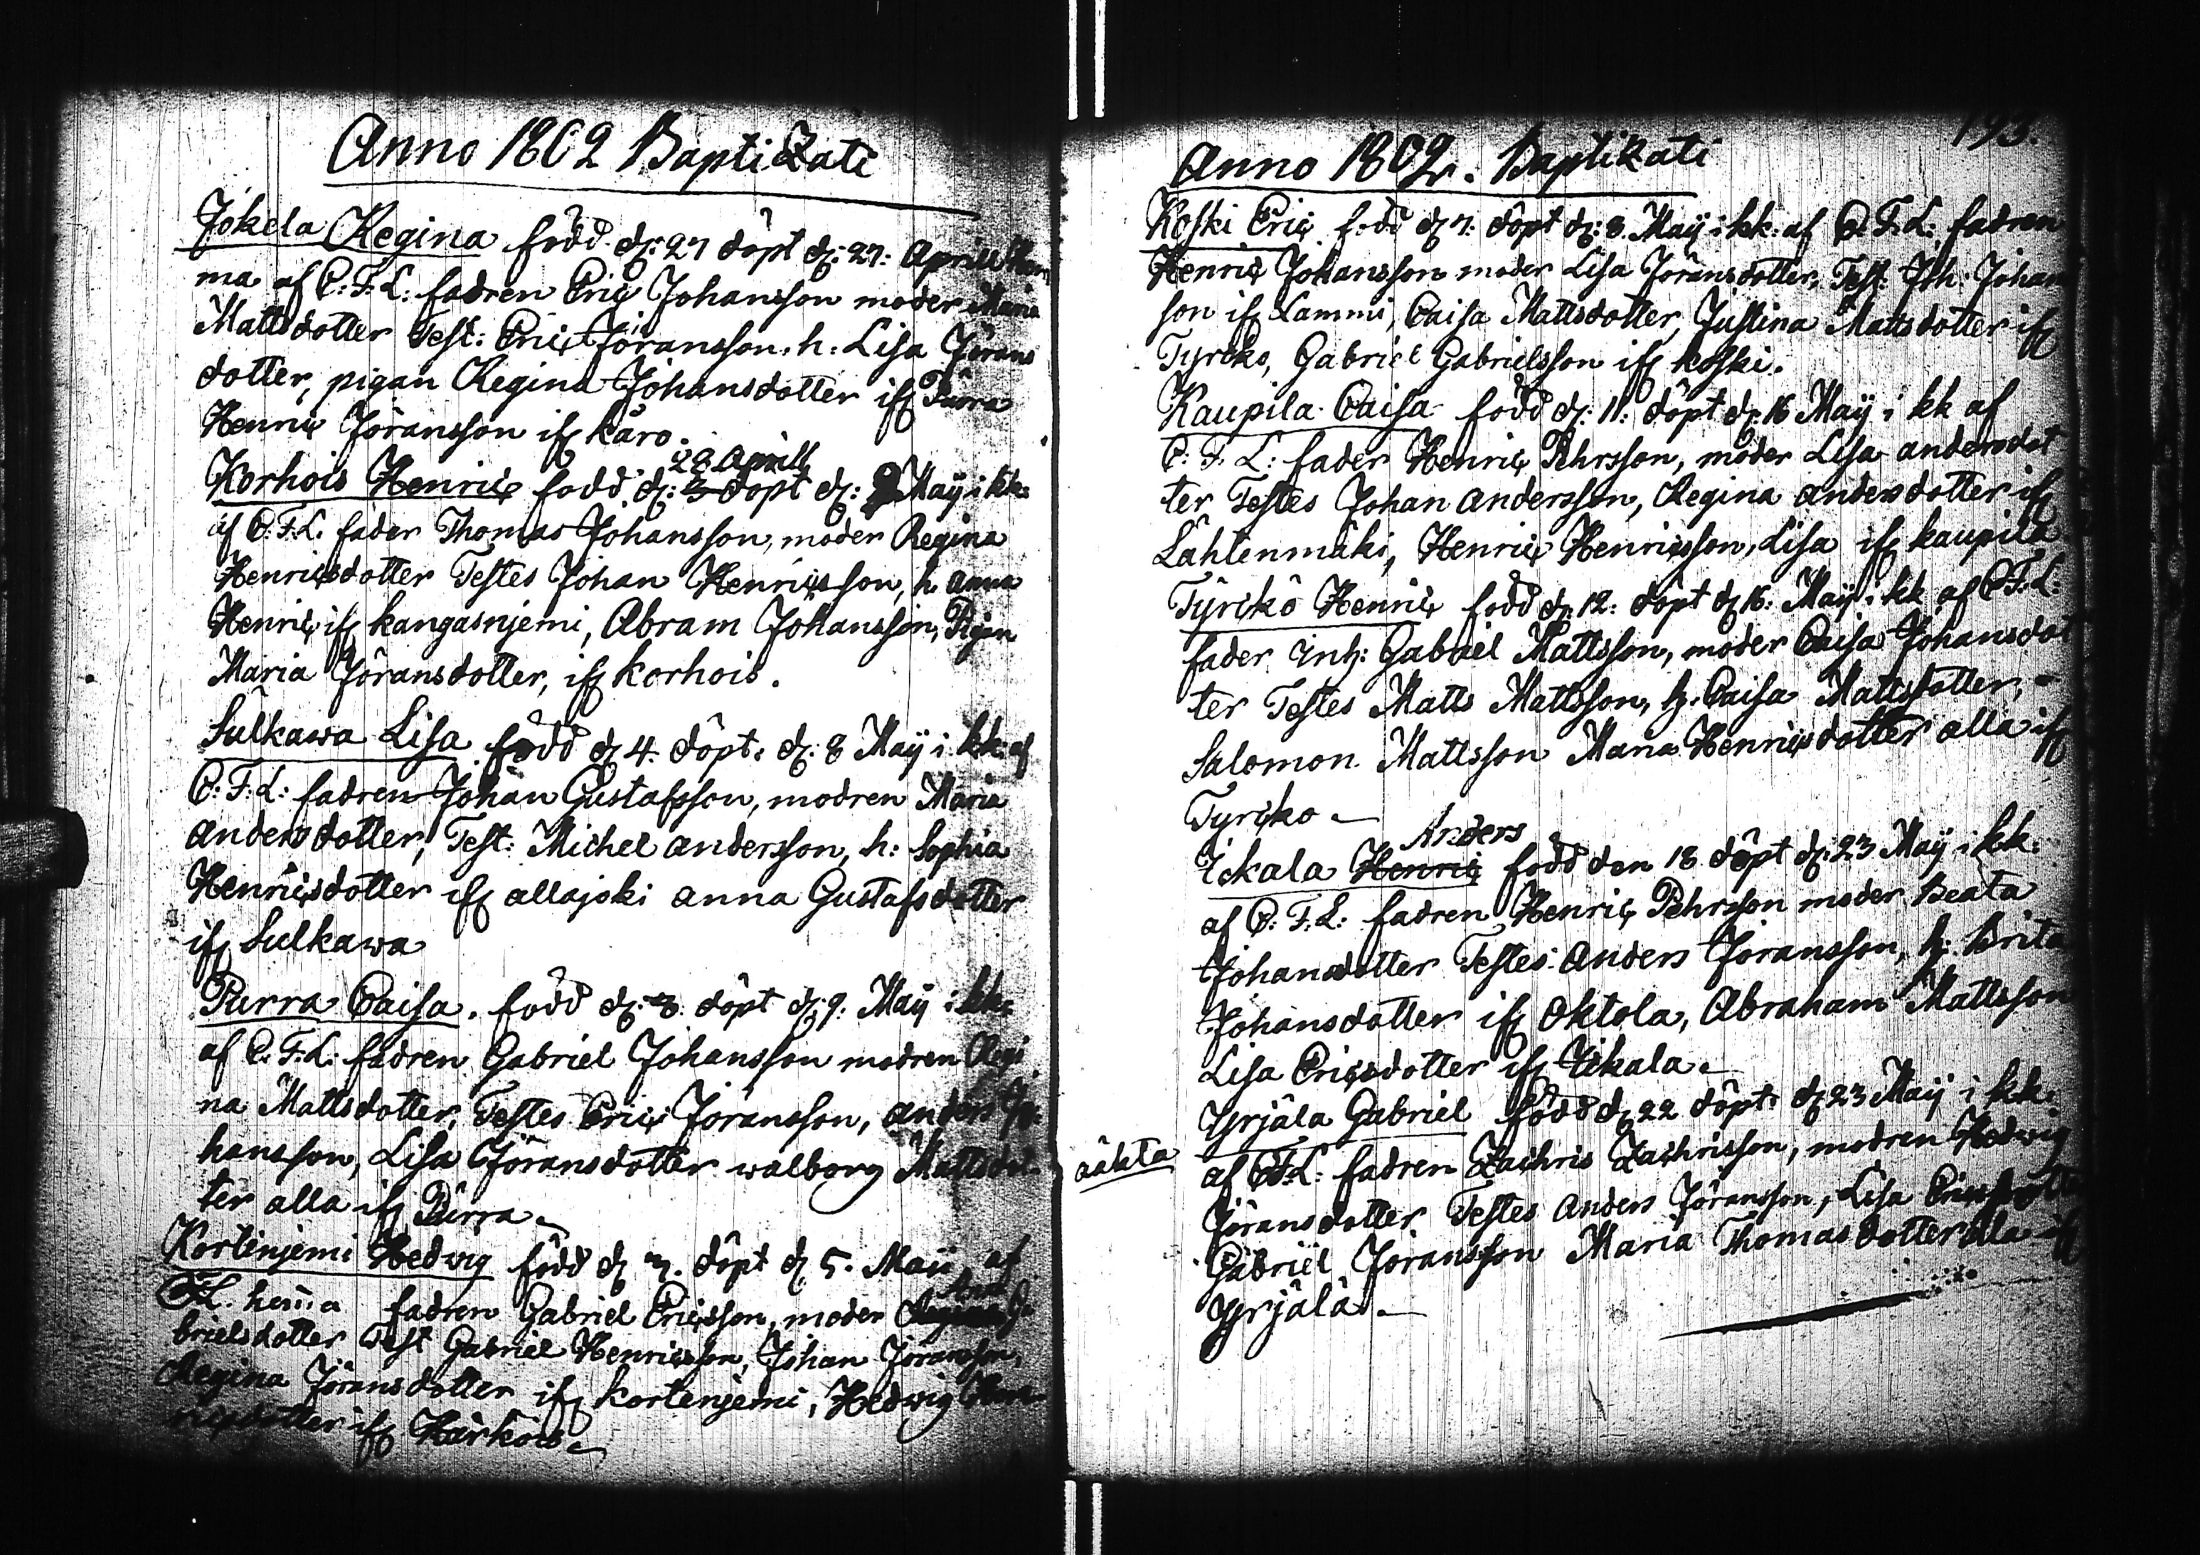 Anno 1802 Baptizati
Jokela Regina född d: 27 döpt d: 27: Aprill hem
ma af C: F: L: fadren Eric Johansson moder Maria
Mattsdotter Test: Eric Jöransson, h: Lisa Jörans
dotter, pigan Regina Johansdotter if Purra
Henric Jöransson if käro.
28 Aprill
Korhois Henric född d: 3 döpt d: 2 Maÿ i kk:
af C: F: L. fader Thomas Johansson, moder Regina
Henricsdotter Testes Johan Henricsson, h. Anna
Henric if kangasnjemi, Abram Johansson, Pigan
Maria Jöransdotter, if korhois.
Sulkawa Lisa född d 4. döpt. d: 8 Maÿ i kk: af
C: F: L: fadren Johan Gustafsson, modren Maria
Andersdotter, Test: Michel Andersson, h: Sophia
Henricsdotter if allajoki Anna Gustafsdotter
if Sulkawa
Purra Caisa. född d: 8. döpt d: 9: Maÿ i kk
af C: F: L: fadren Gabriel Johansson modren Regi
na Mattsdotter, Testes Eric Jöransson, Anders Jo
hansson, Lisa Jöransdotter walborg Mattsdot
ter alla if Purra
Kortenjemi Hedwig född d 3. döpt d 5. Maÿ af
C F L. hema fadren Gabriel Ericsson, moder Ga
brielsdotter Test Gabriel Henricsson, Johan Jöransson,
Regina Jöransdotter if kortenjemi, Hedwig Hen
ricsdotter if Härkois
193.
Anno 1802. Baptizati
Koski Eric född d 7. döpt d: 8. Maÿ i kk: af C. F. L: fadren
Henric Johansson moder Lisa Jöransdotter, Test: Joh: Johan
son if Lammi, Caisa Mattsdotter, Justina Mattsdotter if
Tyrcko, Gabriel Gabrielsson if koski.
Kaupila Caisa född d: 11: döpt d: 16 Maÿ i kk af
C: F: L: fader Henric Pehrsson, moder Lisa andersdot
ter Testes Johan andersson, Regina andersdotter if
Lahtenmäki, Henric Henricsson, Lisa if kaupila
Tyrckö Henric född d: 12: döpt d 16: Maÿ i kk af C F: L:
fader inh: Gabriel Mattsson, moder Caisa Johansdot
ter Testes Matts Mattsson, h. Caisa Mattsdotter,
Salomon Mattsson Maria Henricsdotter alla if
Tyrcko
Anders
Ickala Henric född den 18 döpt d: 23 Maÿ i kk:
af C: F: L: fadren Henric Pehrsson moder Beata
Johansdotter Testes Anders Jöransson, h: Brita
Johansdotter if Oktola, Abraham Mattsson
Lisa Ericsdotter if Ickala
Yrjälä Gabriel född d 22 döpt d 23 Maÿ i kk.
oäkta
af C F: L: fadren Zachris Zachrisson, modren Hedwig
Jöransdotter Testes Anders Jöransson, Lisa
Gabriel Jöransson Maria Thomasdotter alla if
Yrjälä